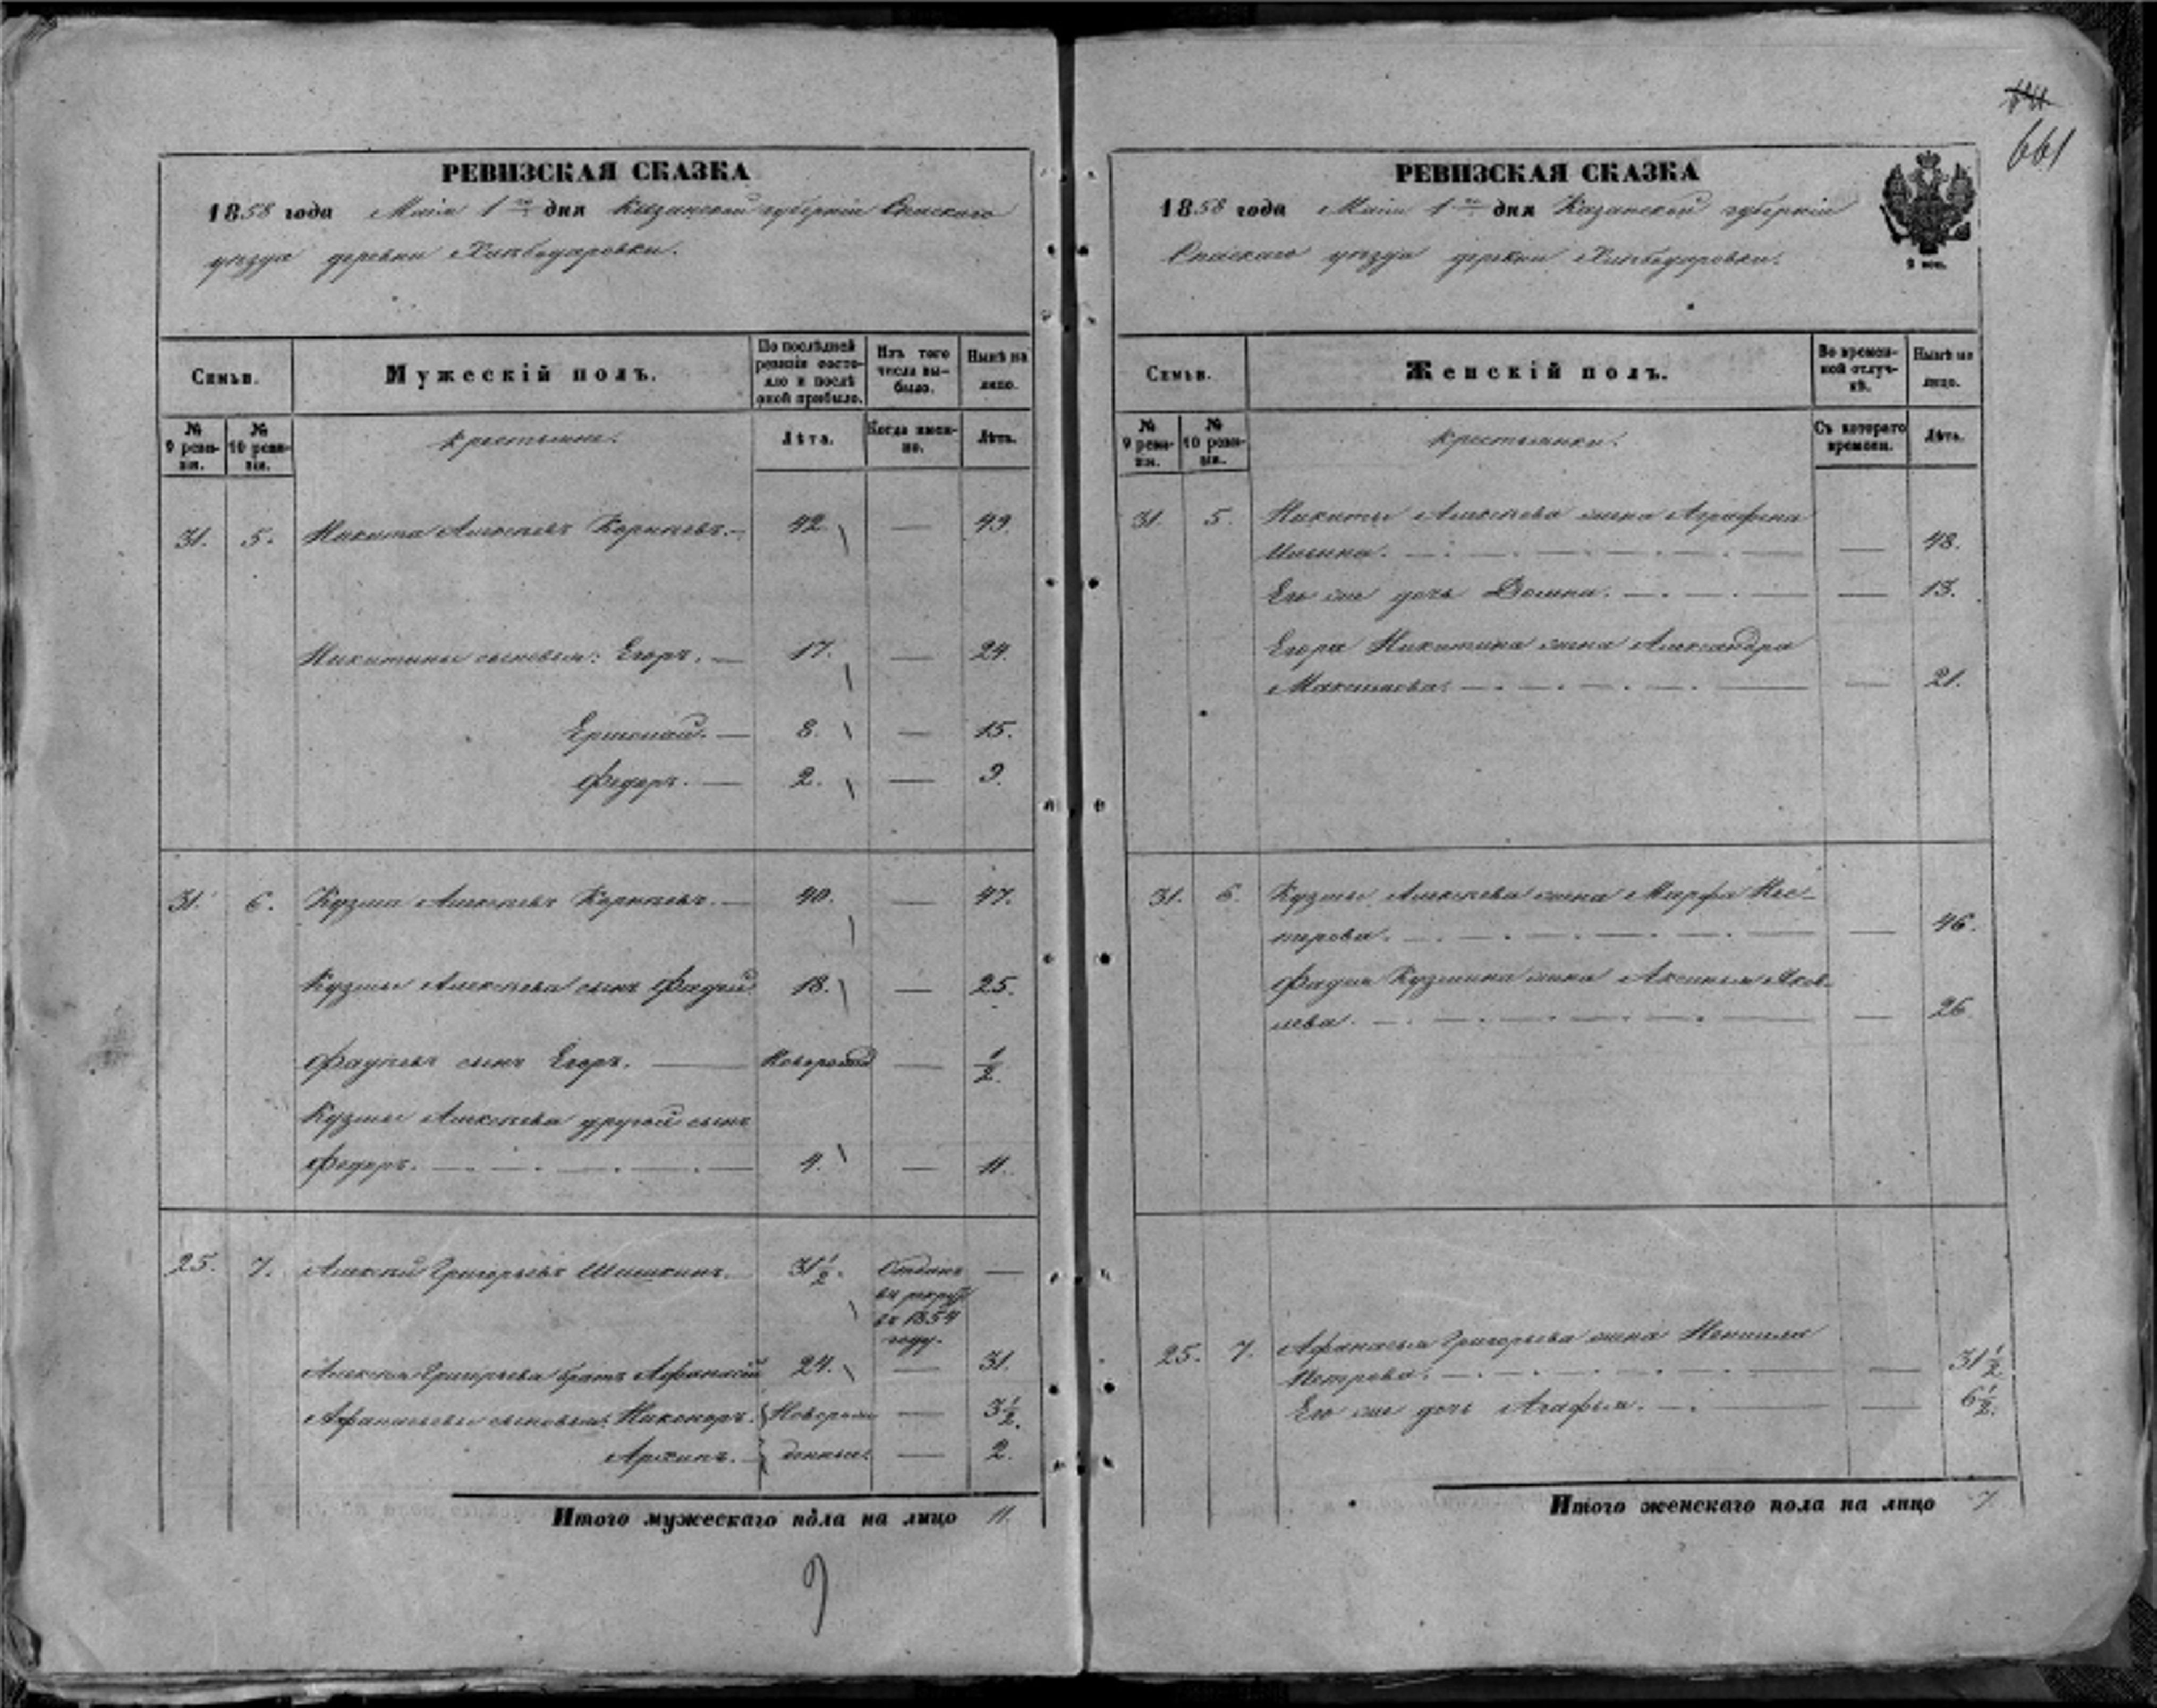 РЕВИЗСКАЯ СКАЗКА
1858 года Маія 1го дня Казанской губерніи Спаскаго
уѣзда деревни Хлѣбодаровки.
Семьи.
Мужескій полъ.
По послѣдней ревизіи состояло и послѣ оной прибыло.
Изъ того числа выбыло.
Нынѣ на лицо.
№ 9 ревизіи.
№ 10 ревизіи.
крестьяне.
Лѣта.
Когда именно.
Лѣта.
31. 5. Никита Алексѣевъ Корнѣевъ.— 42. — 49.
Никитины сыновья: Егоръ.— 17. — 24.
Ермолай.— 8. — 15.
Федоръ.— 2. — 9.
31. 6. Кузма Алексѣевъ Корнѣевъ.— 40. — 47.
Кузмы Алексѣева сынъ Фадей 18. — 25.
Фадѣевъ сынъ Егоръ. — Новорожд — 1/2.
Кузмы Алексѣева другой сынъ
Федоръ. — 4. — 11.
25. 7. Алексѣй Григорьевъ Шишкинъ. 31 1/2. Отданъ —
въ рекру
въ 1854
году.
Алексѣя Григорьева братъ Афанасій 24. — 31.
Афанасьевы сыновья: Никоноръ. Новорож — 3 1/2.
Архипъ. денные. — 2.
Итого мужескаго пола на лицо 11.
9
661
РЕВИЗСКАЯ СКАЗКА
1858 года Маія 1го дня Казанской губерніи
Спаскаго уѣзда деревни Хлѣбодаровки.
2 коп.
Семьи.
Женскій полъ.
Во временной отлучкѣ.
Нынѣ на лицо.
№ 9 ревизіи.
№ 10 ревизіи.
крестьянки.
Съ котораго времени.
Лѣта.
31. 5. Никиты Алексѣева жена Аграфена
— — 48.
Его же дочь Домна. — — 13.
Егора Никитина жена Александра
Максимова. — — 21.
31. 6. Кузмы Алексѣева жена Марфа Нес-
терова. — — 46.
Фадея Кузмина жена Аксинья Яков-
лева. — — 26.
25. 7. Афанасья Григорьева жена Ненила
Петрова. — — 31 1/2.
Его же дочь Агафья. — — 6 1/2.
Итого женскаго пола на лицо 7.